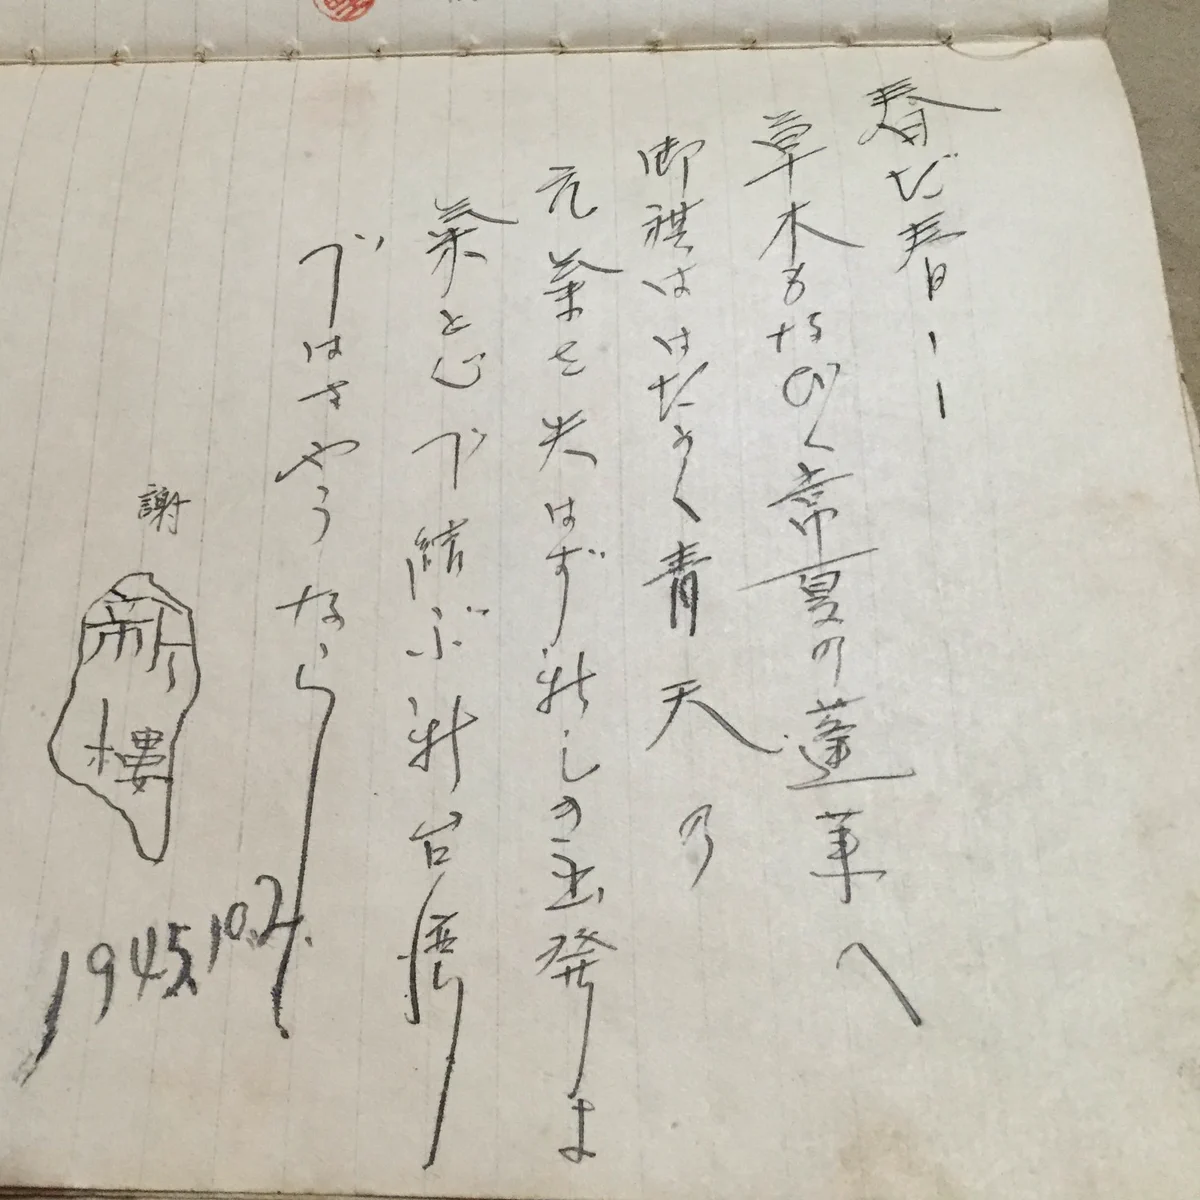 春だ春ーー
草木もなびく常夏の蓬莱へ
御旗ははためく青天の
元気を失はず新しき出発よ
気と心で結ぶ新台湾
ではさやうなら
謝
新樓
1945,10.2